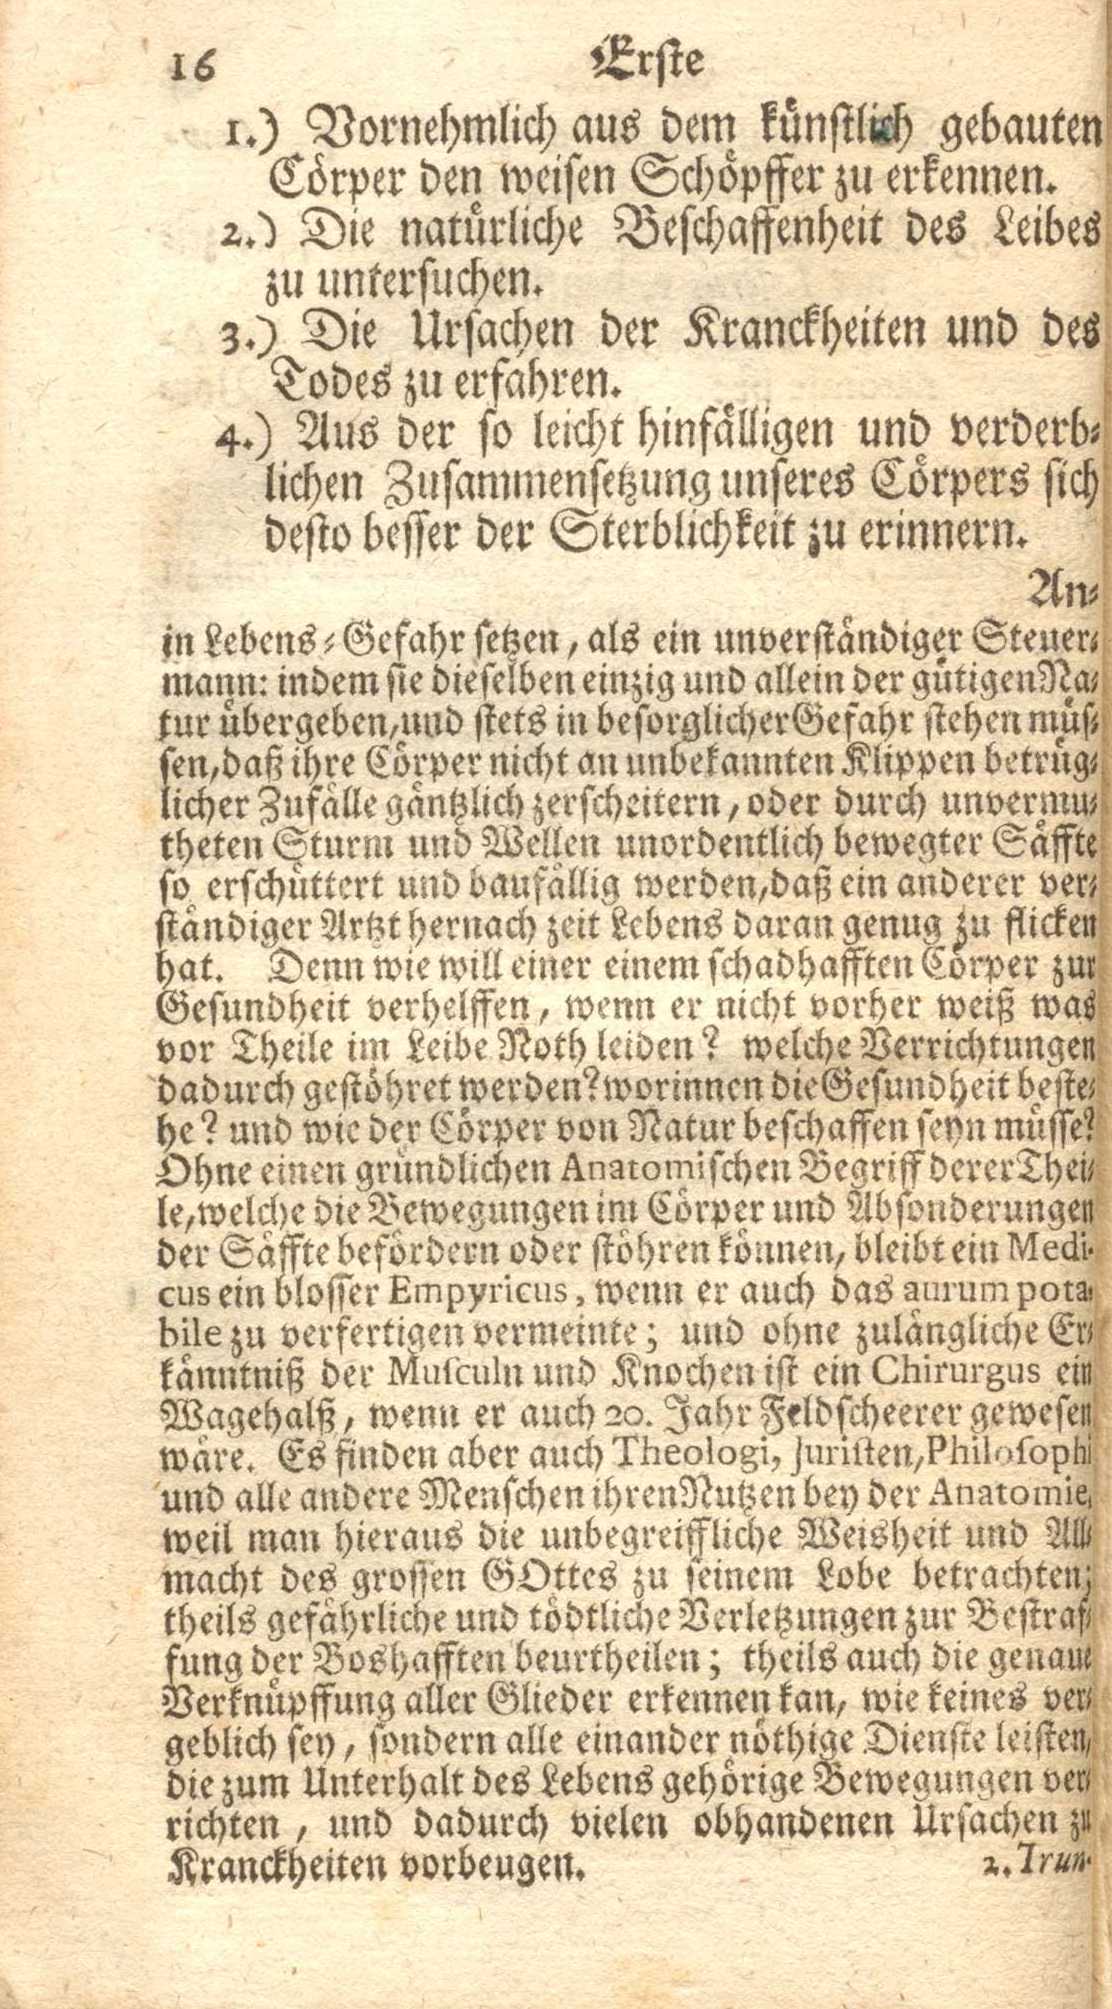 16 Erste
1.) Vornehmlich aus dem künstlich gebauten
Cörper den weisen Schöpffer zu erkennen.
2.) Die natürliche Beschaffenheit des Leibes
zu untersuchen.
3.) Die Ursachen der Kranckheiten und des
Todes zu erfahren.
4.) Aus der so leicht hinfälligen und verderb-
lichen Zusammensetzung unseres Cörpers sich
desto besser der Sterblichkeit zu erinnern.
An-
in Lebens-Gefahr setzen, als ein unverständiger Steuer-
mann: indem sie dieselben einzig und allein der gütigen Na-
tur übergeben, und stets in besorglicher Gefahr stehen müs-
sen, daß ihre Cörper nicht an unbekannten Klippen betrüg-
licher Zufälle gäntzlich zerscheitern, oder durch unvermu-
theten Sturm und Wellen unordentlich bewegter Säffte
so erschüttert und baufällig werden, daß ein anderer ver-
ständiger Artzt hernach zeit Lebens daran genug zu flicken
hat. Denn wie will einer einem schadhafften Cörper zur
Gesundheit verhelffen, wenn er nicht vorher weiß was
vor Theile im Leibe Noth leiden? welche Verrichtungen
dadurch gestöhret werden? worinnen die Gesundheit beste-
he? und wie der Cörper von Natur beschaffen seyn müsse?
Ohne einen gründlichen Anatomischen Begriff derer Thei-
le, welche die Bewegungen im Cörper und Absonderungen
der Säffte befördern oder stöhren können, bleibt ein Medi-
cus ein blosser Empyricus, wenn er auch das aurum pota-
bile zu verfertigen vermeinte; und ohne zulängliche Er-
känntniß der Musculn und Knochen ist ein Chirurgus ein
Wagehalß, wenn er auch 20. Jahr Feldscheerer gewesen
wäre. Es finden aber auch Theologi, Juristen, Philosophi
und alle andere Menschen ihren Nutzen bey der Anatomie,
weil man hieraus die unbegreiffliche Weisheit und All-
macht des grossen GOttes zu seinem Lobe betrachten;
theils gefährliche und tödtliche Verletzungen zur Bestraf-
fung der Boshafften beurtheilen; theils auch die genaue
Verknüpffung aller Glieder erkennen kan, wie keines ver-
geblich sey, sondern alle einander nöthige Dienste leisten,
die zum Unterhalt des Lebens gehörige Bewegungen ver-
richten, und dadurch vielen obhandenen Ursachen zu
Kranckheiten vorbeugen. 2. Trun-